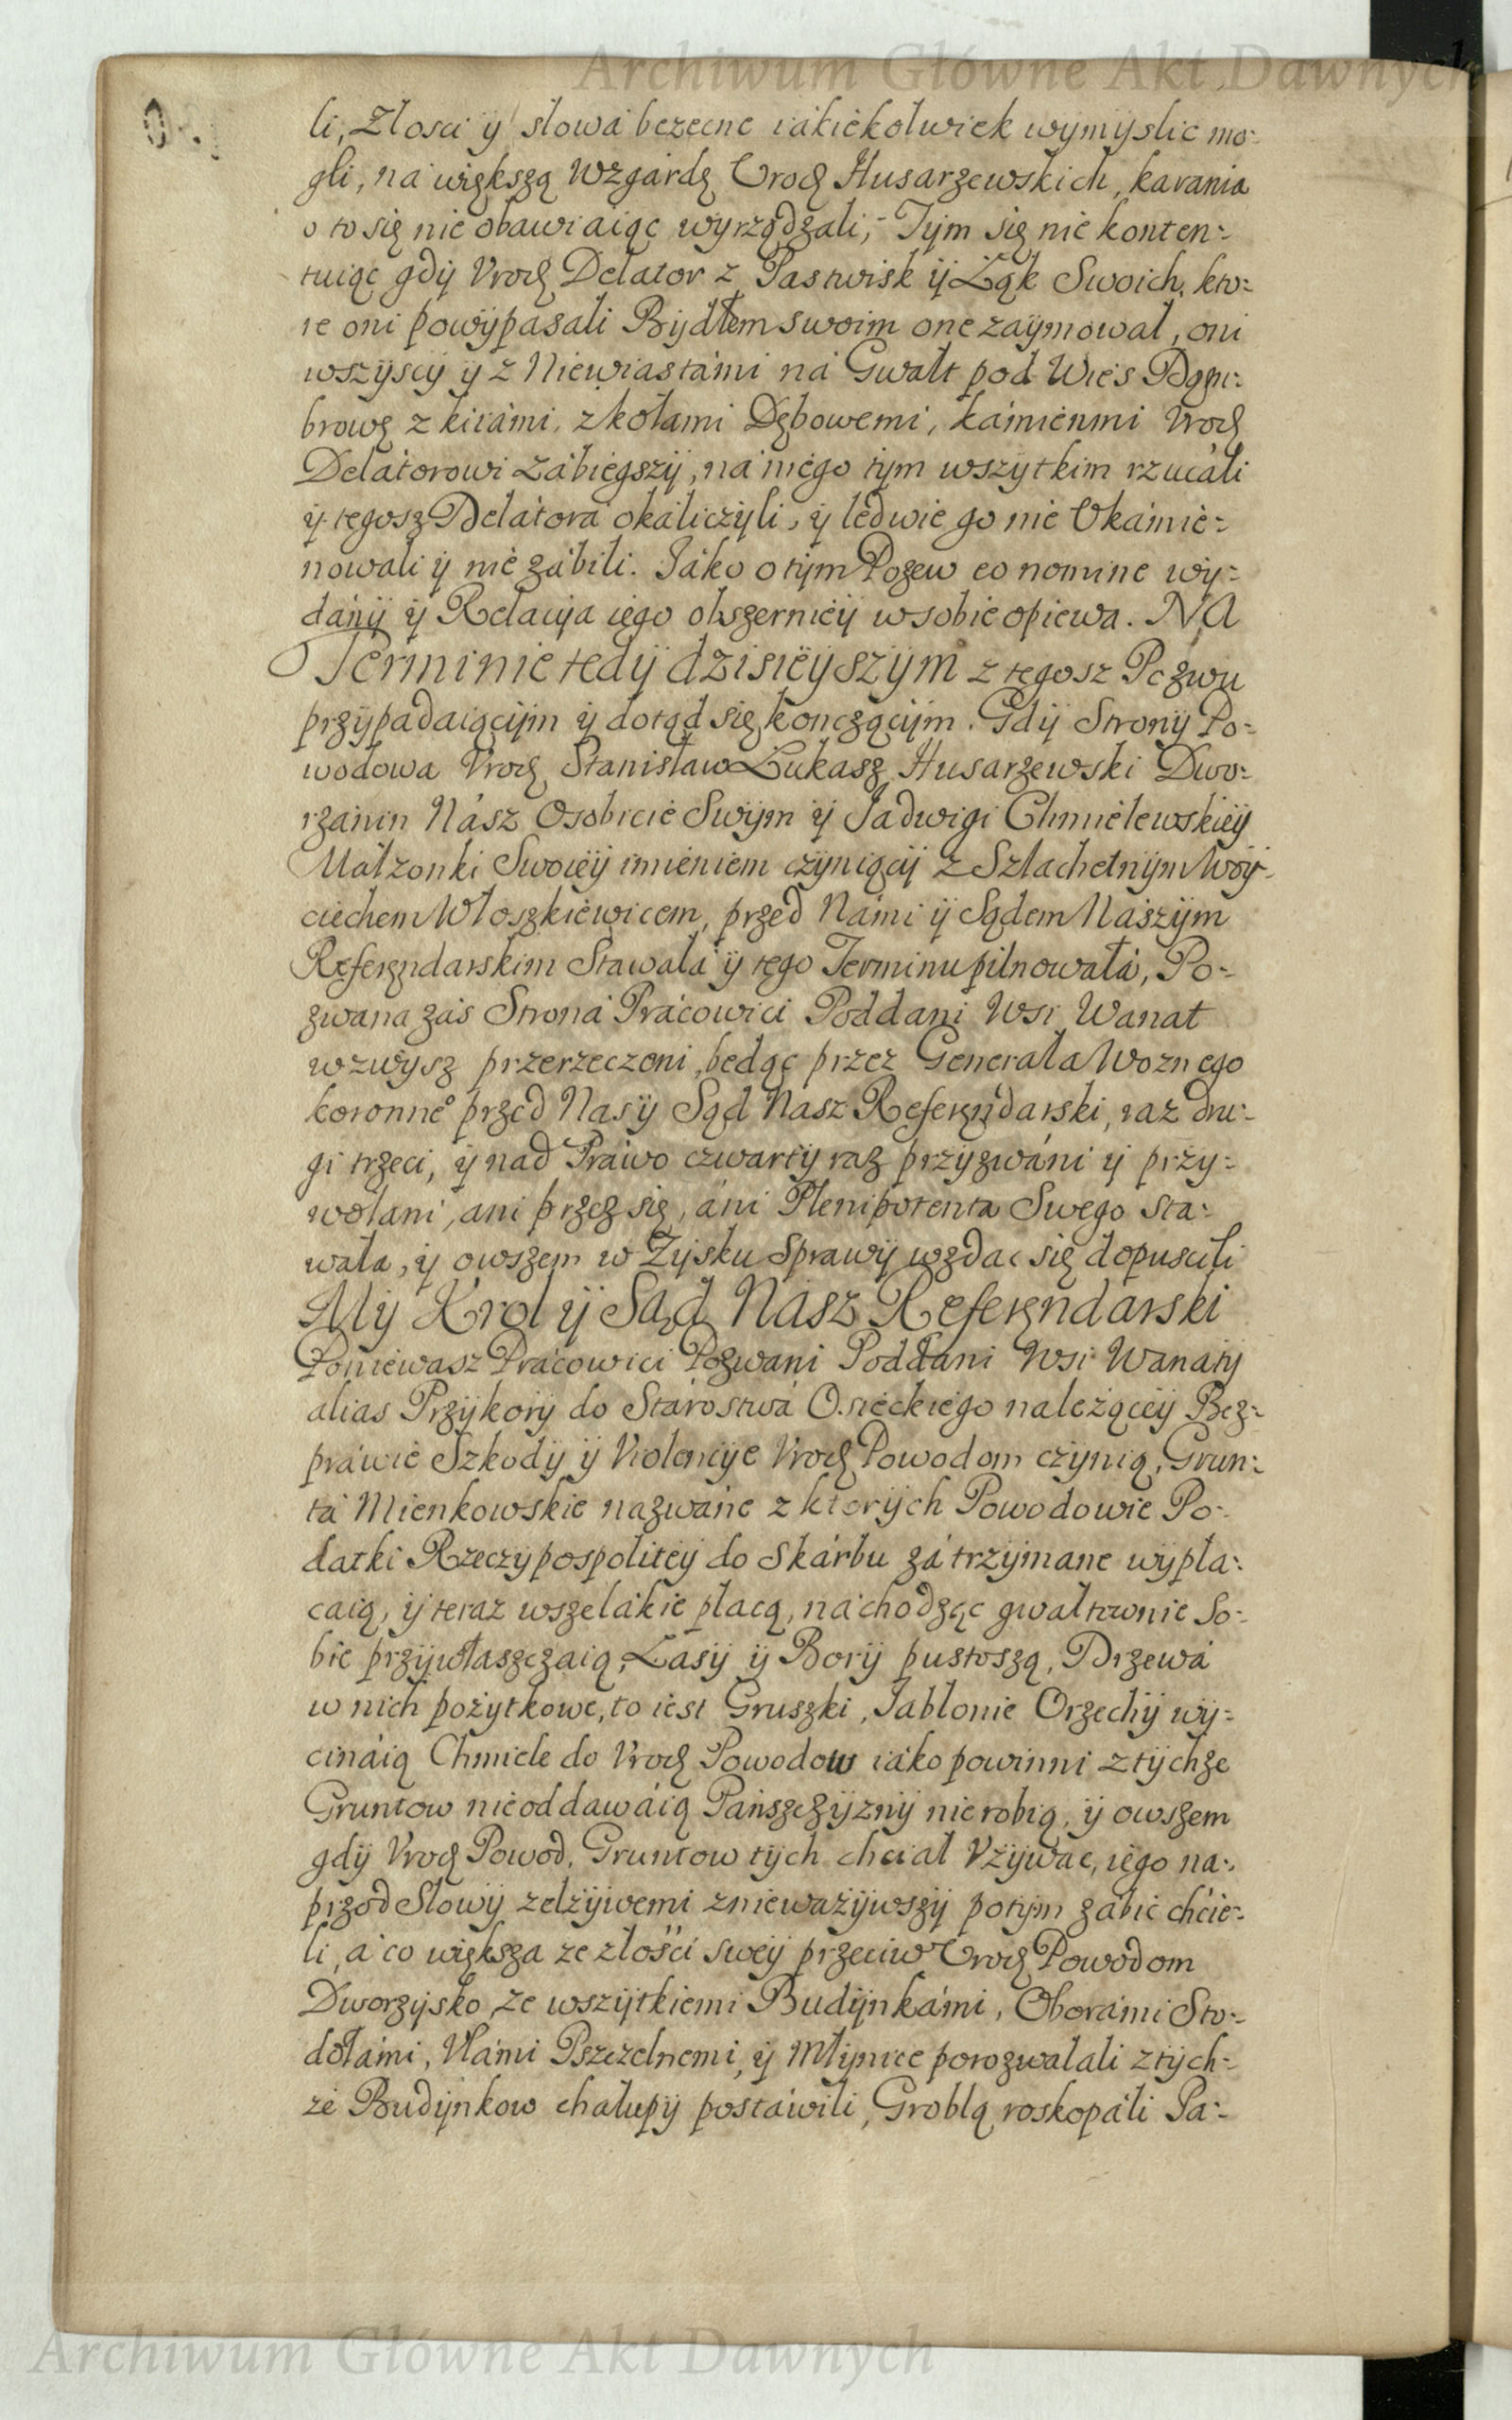 Archiwum Główne Akt Dawnych
li, Złosci ÿ słowa bezecne iákiékolwiek wymyslic mo-
gli, ná większą wzgárdę Urodz Husarzewskich, karania
o to się nie obawiaiąc wyrządzali, Tÿm się nié konten-
tuiąc gdÿ Vrodz Delator z Pastwisk ÿ Łąk Swoich, kto-
re oni powÿpásali Bÿdłem swoim one zaÿmował, oni
wszÿscÿ ÿ z Niéwiastámi ná Gwałt pod Wiés
browę z kiiámi, z kołami Dębowemi, kámiénmi Vrodz
Delátorowi zábiégszÿ, ná niégo tÿm wszytkim rzucáli
ÿ tegosz Delátorá okáliczÿli, ÿ ledwie go nié Ukámié-
nowali ÿ nié zábili. Jáko o tÿm Pozew eo nomine wÿ-
dánÿ ÿ Relacÿa iégo obszerniéÿ w sobié opiewa. NA
Terminié tedÿ dzisiéÿszÿm z tegosz Pozwu
przÿpadaiącÿm ÿ dotąd się konczącÿm. Gdÿ Stronÿ Po-
wodowa Vrodz Stanisław Łukasz Husarzewski Dwo-
rzanin Nász Osobiscié Swÿm ÿ Jadwigi Chmiélewskiéÿ
Małzonki Swoiéÿ imiéniem czÿniącÿ z Szlachetnÿm Woÿ-
ciechem Włoszkiéwicem, przed Námi ÿ Sądem Nászÿm
Referęndarskim Stawałá ÿ tego Terminu pilnowałá, Po-
zwana zás Stroná Prácowici Poddani Wsi Wanat
wzwÿsz przerzeczeni, bedąc przez Generała Woznego
koronneº przed Nas ÿ Sąd Nasz Referęndarski, raz dru-
gi trzeci, ÿ nad Práwo czwartÿ raz przÿzwáni ÿ przÿ-
wołani, ani przez się, áni Plenipotenta Swego sta-
wała, ÿ owszem w Zÿsku Sprawÿ wzdac się dopuscili
Mÿ Krol ÿ Sąd Nász Referęndarski
Poniéwasz Prácowici Pozwani Poddani Wsi Wanatÿ
alias Przÿkorÿ do Stárostwá Osiéckiégo należącéÿ Bez-
práwié Szkodÿ ÿ Violencÿe Vrodz Powodom czÿnią, Grun-
tá Mienkowskié nazwáne z ktorÿch Powodowie Po-
datki Rzeczÿpospolitéÿ do Skárbu zátrzÿmane wÿpła-
caią, ÿ teraz wszelákié płacą, náchodząc gwałtownié So-
bié przÿwłaszczaią, Lasÿ ÿ Borÿ pustoszą, Drzewá
w nich pożytkowe, to iést Gruszki, Jabłonie Orzechÿ wÿ-
cináią Chmiele do Vrodz Powodow iáko powinni z tÿchze
Gruntow nié oddawáią Pańszczÿznÿ nie robią, ÿ owszem
gdÿ Vrodz Powod, Gruntow tÿch chciał Vżÿwac, iégo na-
przod Słowÿ zelżÿwemi znieważÿwszÿ potÿm zábic chcie-
li, á co większa ze złości sweÿ przeciw Urodz Powodom
Dworzÿsko ze wszÿtkiemi Budÿnkámi, Oborámi Sto-
dołámi, Vlámi Pszczelnemi, ÿ Młÿnice porozwalali z tÿch-
że Budÿnkow chałupÿ postáwili, Groblą roskopáli Pa-
Archiwum Główne Akt Dawnych